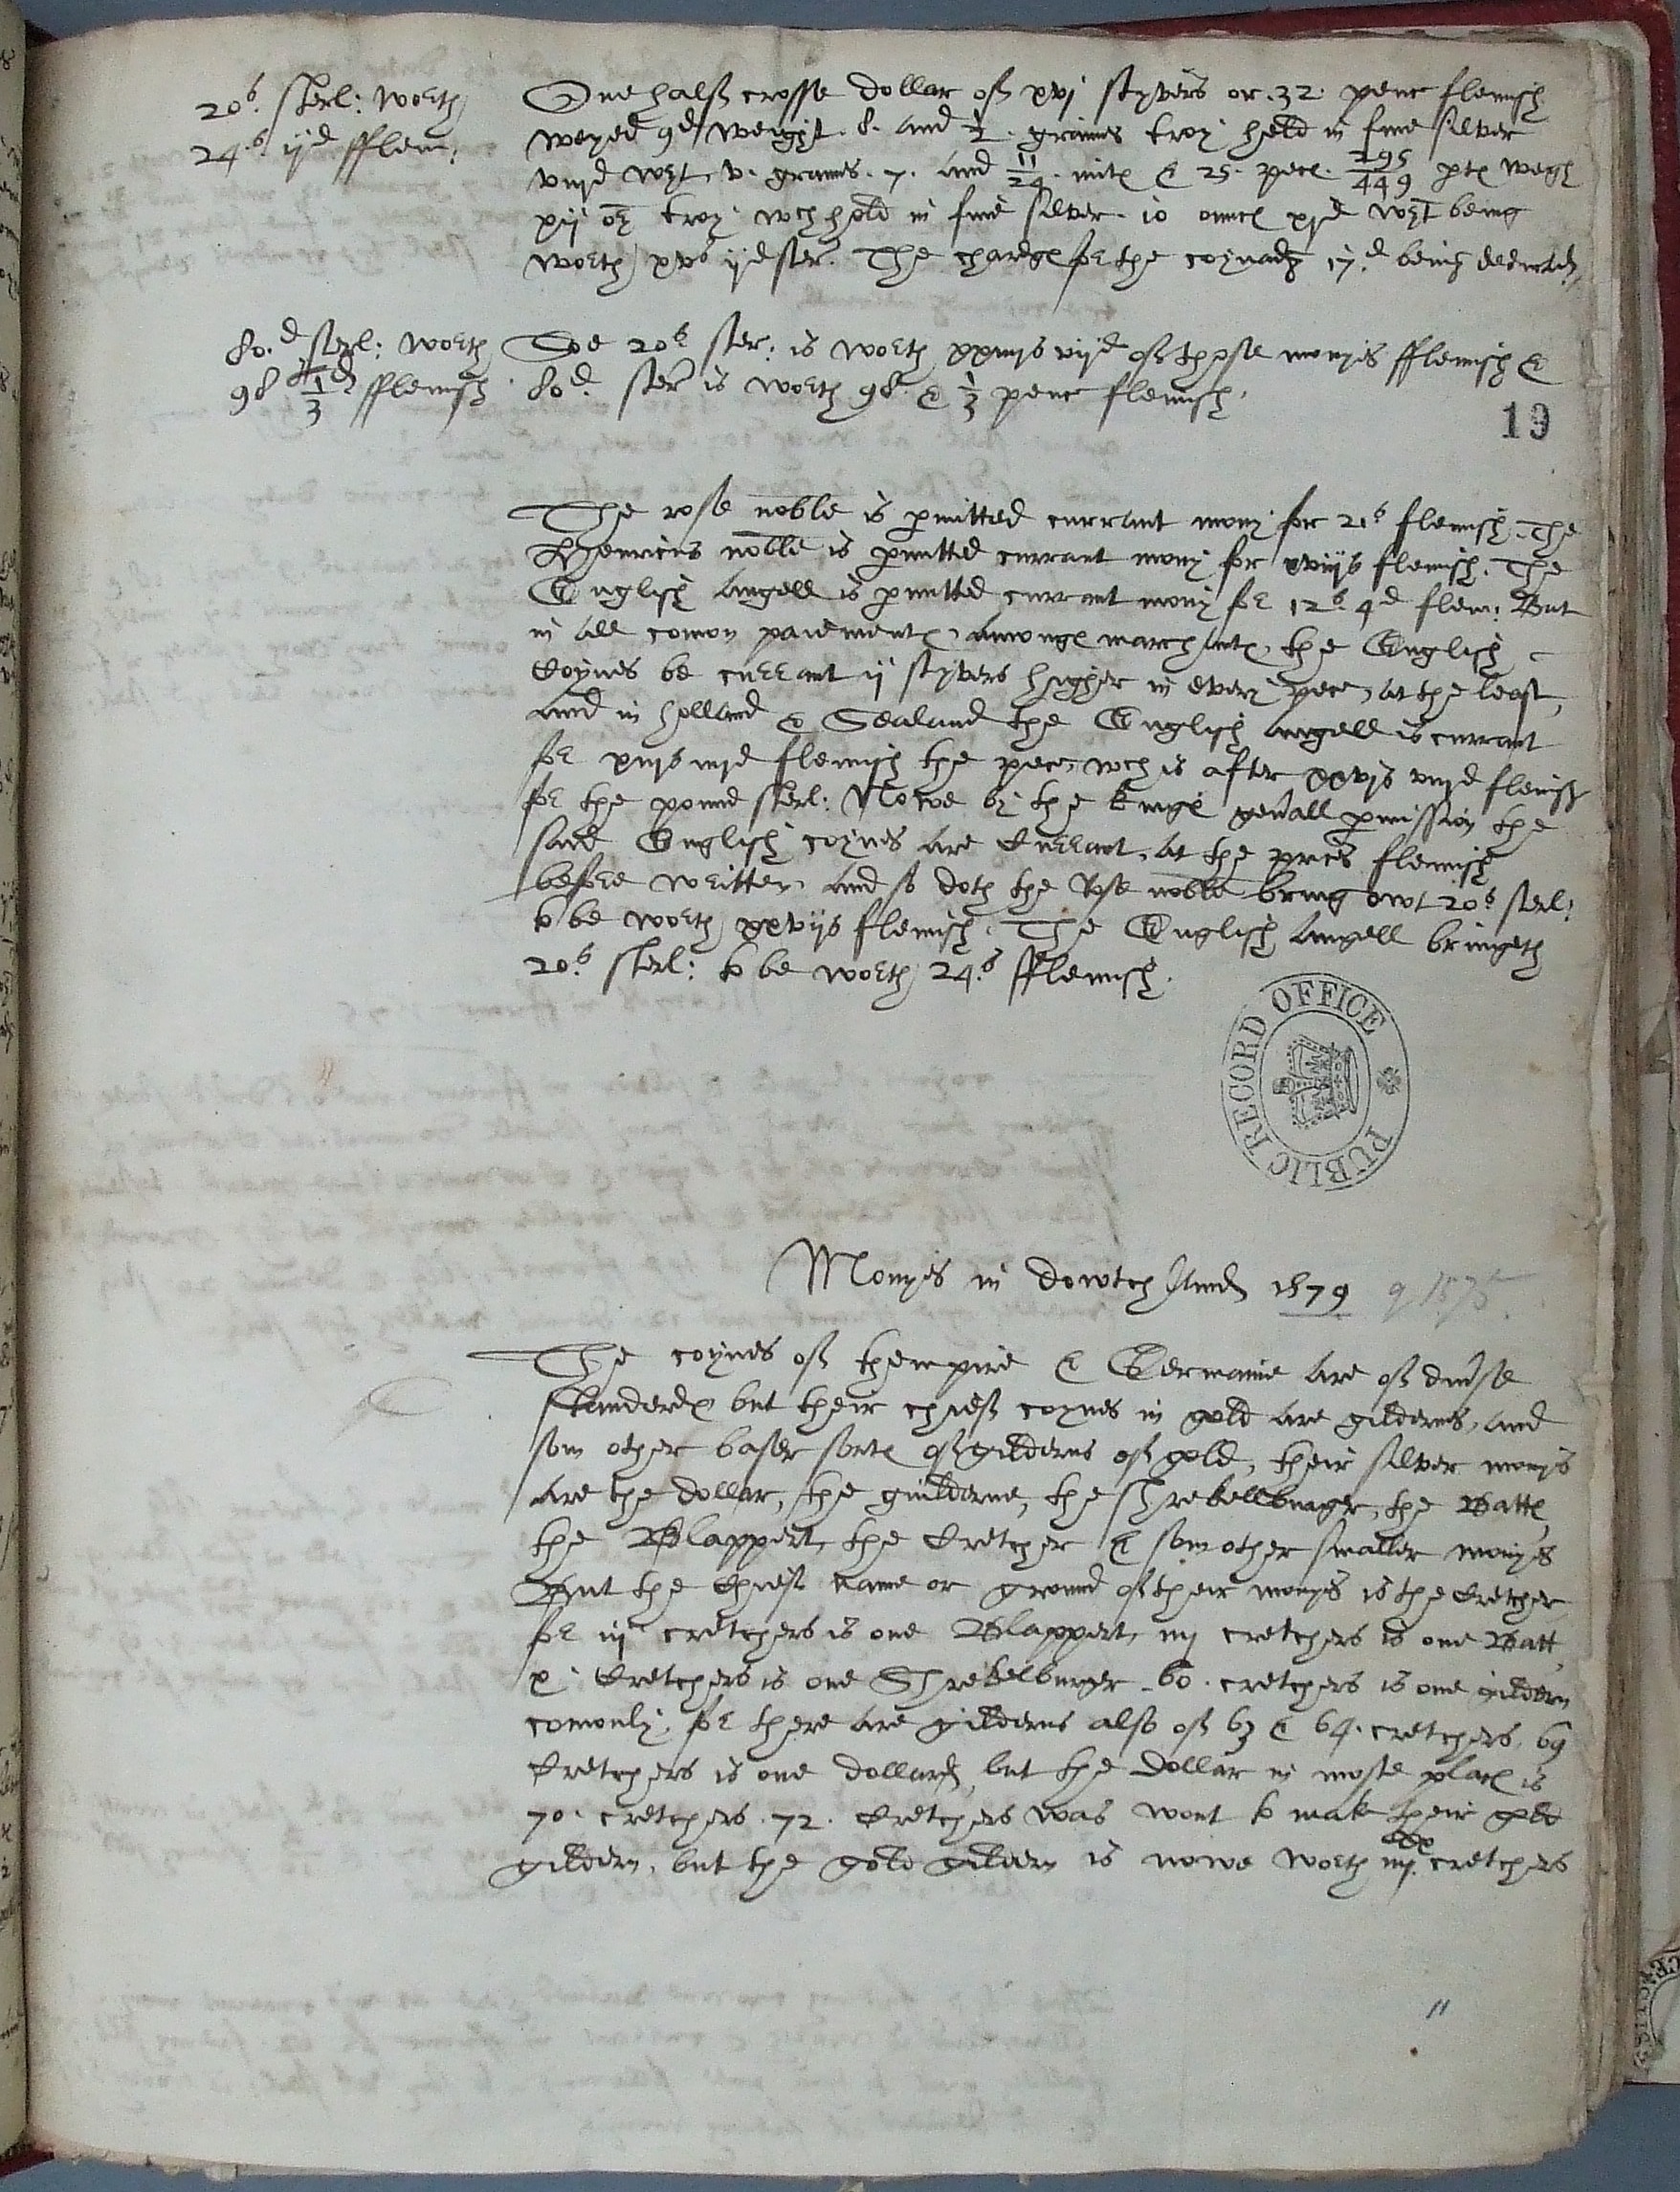 20s. sterl: worth
24.s ijd fflem:
One half crosse dollar of xvj styvers or .32. penc flemish
weyed 9d weight. 8. and 1/2. graines troy held in fine silver
viijd wet. v. graines. 7. and 11/24. mite & 25. pece. 295/449 weigh
xij oz troy wch hold in fine silver. 10 ounce xjd wet being
worth xvs ijd ster. The charge for the coynadg 17.d being deducted
80.d sterl: worth
98 1/3 d flemish
Soe 20s ster: is worth xxiiijs vijd of those monyis fflemish &
80d. ster is worth 98. & 1/3 penc flemish.
19
The rose noble is pmitted currant mony for 21s flemish. The
Henricus noble is pmitted currant mony for xviijs flemish. The
English angell is pmitted currant mony for 12s 4d flem: But
in all comon paiemente, amonge marchante, the English
Coynes be currant ij styvers higher in every pece, at the least,
and in holland & Sealand the English angell is currant
for xiijs iiijd flemish the pece, wch is after xxvjs viijd flemish
for the pound sterl: Nowe by the kinge genall pmission the
said English coynes are Currant, at the prces flemish
before written, and so doth the Rose noble bring owt 20s sterl:
to be worth xxviijs flemish. The English Angell bringeth
20.s sterl: to be worth 24.s fflemish.
PUBLIC RECORD OFFICE
Monyis in dowtch land 1579 q 1575
The coynes of thempire & Germanie are of divse
standerde but their chief coynes in gold are gilderns, and
som other baser sorte of gilderns of gold, their silver monyis
are the dollar, the guilderne, the Shrekellburger, the Batte,
the Blappert, the Cretcher & som other smaller monyis
But the Chief name or ground of their monyis is the Cretcher
for iij cretchers is one Blappert, iiij cretchers is one Batt,
x. Cretchers is one Shrekelburger 60. cretchers is one gildern
comonly, for there are gilderns also of 63 & 64. cretchers, 69
Cretchers is one dollard, but the Dollar in moste place is
70. cretchers. 72. Cretchers was wont to make their gold
gildern, but the gold gildern is nowe worth iiij xx cretchers